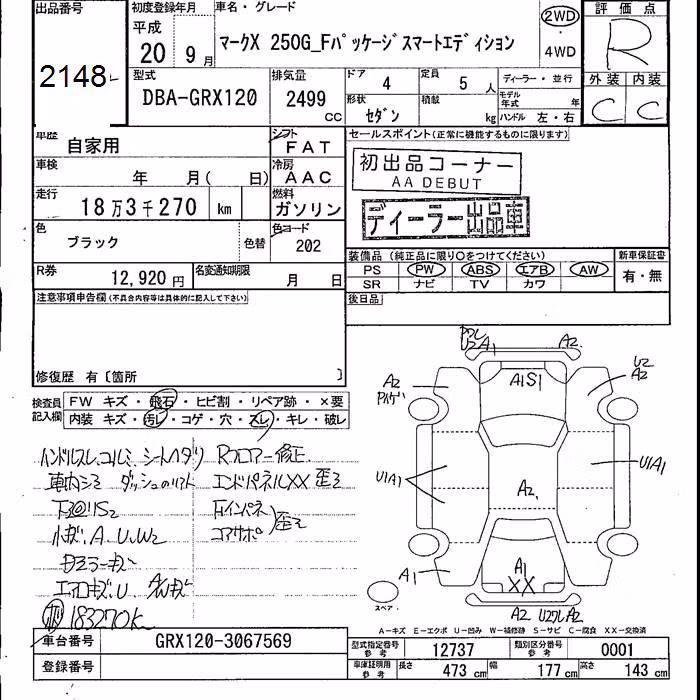 出品番号
2148
初度登録年月
平成
20 9月
車名・グレード
マークX 250G_Fパッケージスマートエディション
2WD
・
4WD
評価点
R
外装 内装
C C
型式
DBA-GRX120
排気量
2499
CC
ドア
4
定員
5 人
形状
セダン
積載
kg
ディーラー・並行
モデル年式 年
ハンドル 左・右
車歴
自家用
シフト
FAT
車検
年 月( 日)
冷房
AAC
走行
18万3千270 km
燃料
ガソリン
色
ブラック
色替
色コード
202
R券
12,920 円
名変通知期限
月 日
セールスポイント(正常に機能するものに限ります)
初出品コーナー
AA DEBUT
ディーラー出品車
装備品 (純正品に限り○をつけてください)
新車保証書
PS PW ABS エアB AW
SR ナビ TV カワ
有・無
後日品
注意事項申告欄(不具合内容等は具体的に記入して下さい)
修復歴 有〔箇所 〕
検査員
記入欄
FW キズ・飛石・ヒビ割・リペア跡・×要
内装 キズ・汚レ・コゲ・穴・スレ・キレ・破レ
ハンドルスレ コルミ シートヘタリ
Rフロアー修正
車内シミ
エンドパネルXX 歪ミ
下回りS2
小キズ・A U W2
コアサポ 歪ミ
ドアミラーキズ
エアロキズ・U
183270K
U2 A1
A2
A1S1
A2
U2
A2
U1A1
U1A1
A2
A1
A1
XX
A2
A2
スペア
A-キズ E-エクボ U-凹み W-補修跡 S-サビ C-腐食 XX-交換済
車台番号
GRX120-3067569
登録番号
型式指定番号
参考
12737
類別区分番号
参考
0001
車庫証明用
参考
長さ 473 cm
幅 177 cm
高さ 143 cm